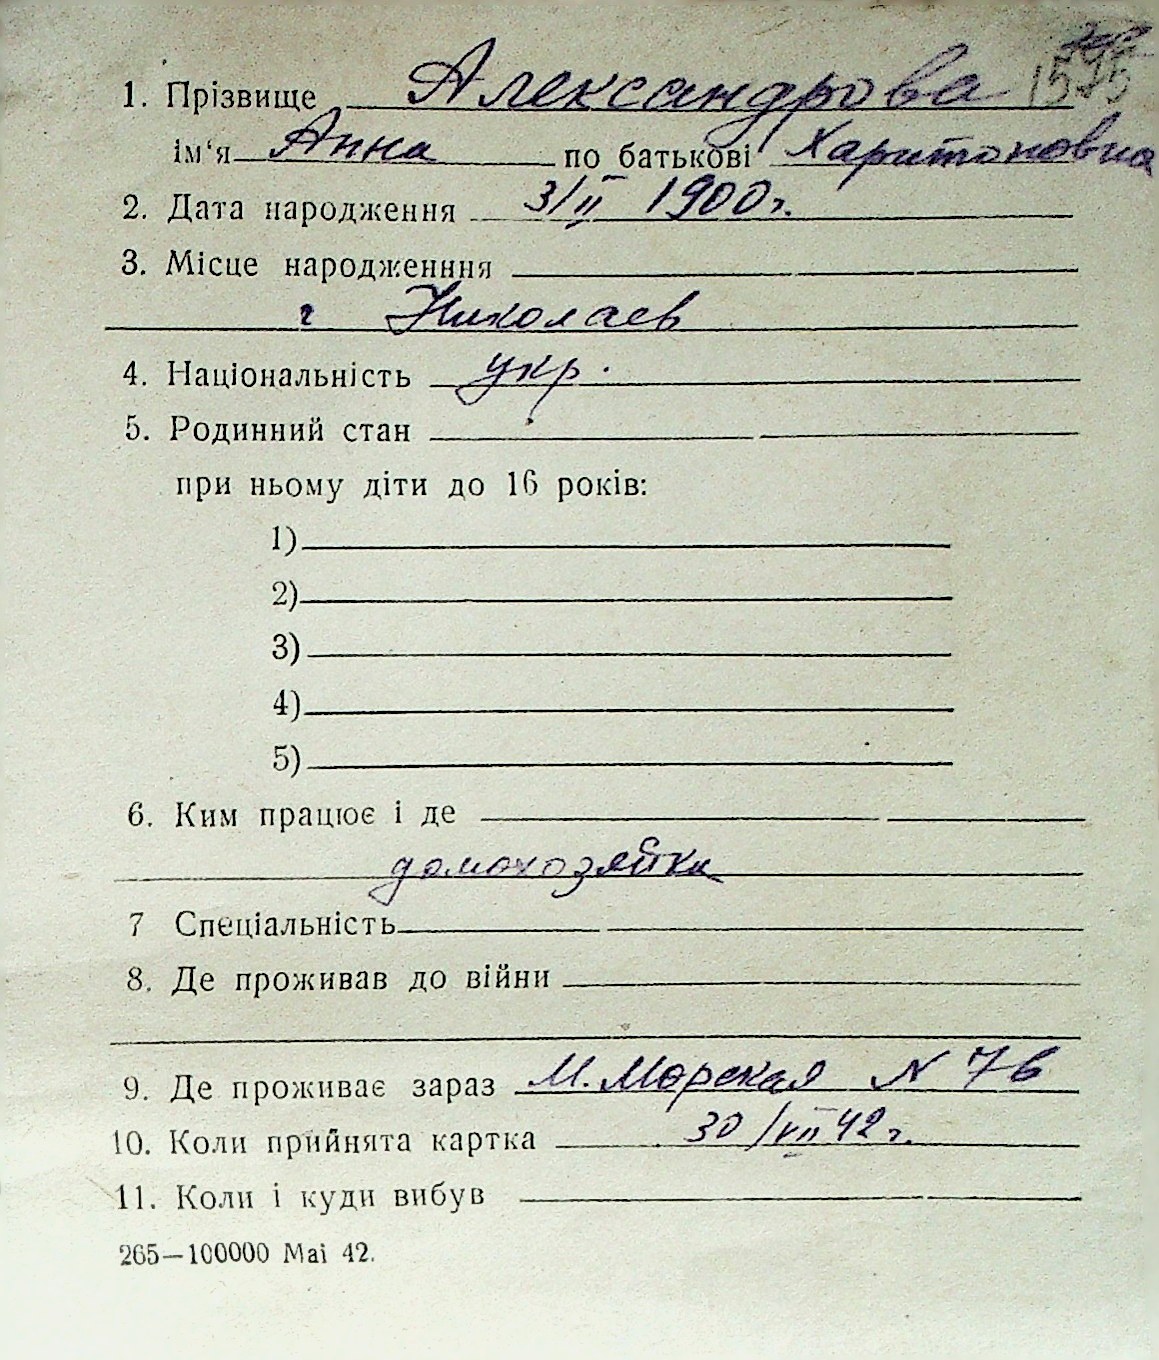 1. Прізвище Александрова
ім‘я Анна по батькові Харитоновна
2. Дата народження 3/II 1900г.
3. Місце народженння
г Николаев
4. Національність укр.
5. Родинний стан
при ньому діти до 16 років:
1)
2)
3)
4)
5)
6. Ким працює і де
домохозяйка
7 Спеціальність
8. Де проживав до війни
9. Де проживає зараз М. Морская N 7в
10. Коли прийнята картка 30/VII 42 г.
11. Коли і куди вибув
265—100000 Маі 42.